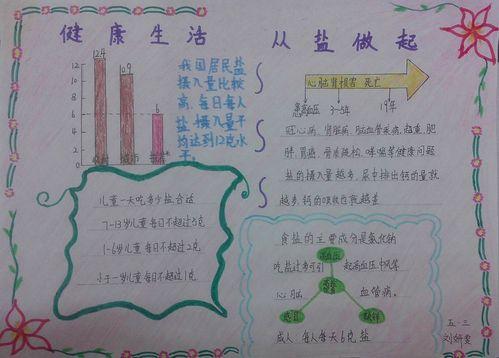 健康生活
从盐做起
12.4
10.9
6
12
10
8
6
4
2
0
我国居民盐
摄入量比较
高，每日每人
盐摄入量平
均达到12克水
平。
心脑肾损害 死亡
患高血压 3-5年 19年
冠心病、肾脏病、脑血管疾病、超重、肥
胖、胃癌、骨质疏松、哮喘等健康问题
盐的摄入量越多，尿中排出钙的量就
越多，钙的吸收也就越差
儿童一天吃多少盐合适
7-13岁儿童每日不超过5克
1-6岁儿童每日不超过2克
小于一岁儿童每日不超过1克
食盐的主要成分是氯化钠
吃盐过多可引 高血压 起高血压中风等
心脑 高盐 血管病。
成人：每人每天6克盐
五·三